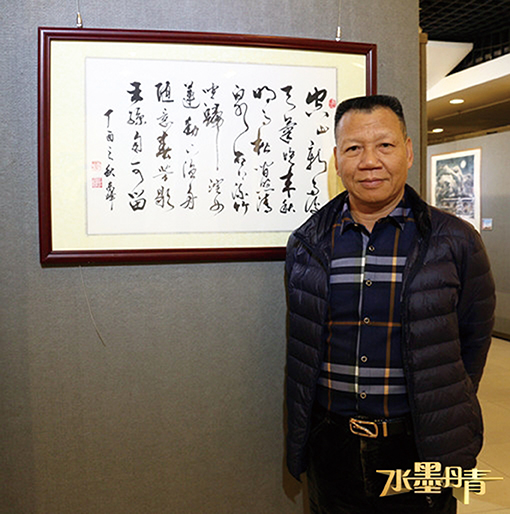 空山新雨后
天氣晚来秋
明月松间照清
泉石上流竹
喧歸浣女
蓮動下渔舟
随意春芳歇
王孫自可留
丁酉之秋
水墨丹青